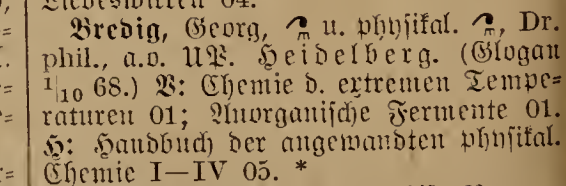 Liebeswirren 04.
Bredig, Georg, u. physikal. , Dr.
phil., a.o. UP. Heidelberg. (Glogau
1/10 68.) V: Chemie d. extremen Tempe=
raturen 01; Anorganische Fermente 01.
H: Handbuch der angewandten physikal.
Chemie I—IV 05. *